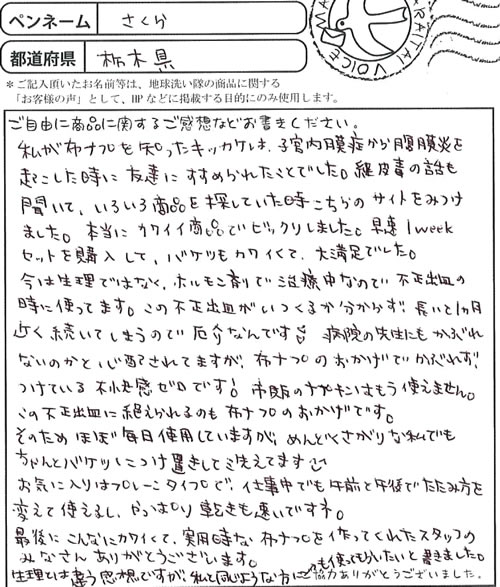 ペンネーム さくら
都道府県 栃木県
*ご記入頂いたお名前等は、地球洗い隊の商品に関する
「お客様の声」として、HPなどに掲載する目的にのみ使用します。
ARAITAI VOICE
ご自由に商品に関するご感想などお書きください。
私が布ナプを知ったキッカケは、子宮内膜症から腹膜炎を
起こした時に友達にすすめられたことでした。経皮毒の話も
聞いて、いろいろ商品を探していた時こちらのサイトをみつけ
ました。本当にカワイイ商品でビックリしました。早速1week
セットを購入して、バケツもカワイくて、大満足でした。
今は生理ではなく、ホルモン剤で治療中なので不正出血の
時に使ってます。この不正出血がいつくるか分からず、長いと1ヵ月
近く続いてしまうので厄介なんです 病院の先生にもかぶれ
ないのかと心配されてますが、布ナプのおかげでかぶれず、
つけている不快感ゼロです! 市販のナプキンはもう使えません。
この不正出血に絶えられるのも布ナプのおかげです。
そのためほぼ毎日使用していますが、めんどくさがりな私でも
ちゃんとバケツにつけ置きして洗えてます
お気に入りはプレーンタイプで、仕事中でも午前と午後でたたみ方を
変えて使えるし、やっぱり乾きも速いですネ。
最後にこんなにカワイくて、実用的な布ナプを作ってくれたスタッフの
みなさんありがとうございます。
生理とは違う感想ですが、私と同じような方にも使ってもらいたいと書きました。
ご協力ありがとうございました。